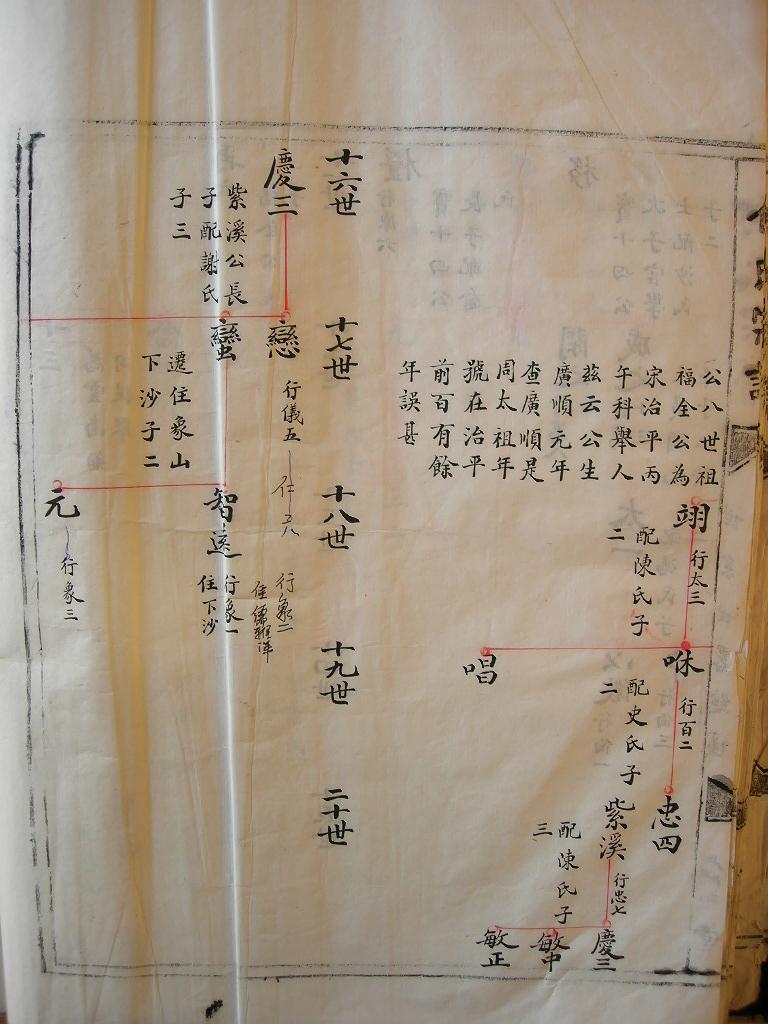 公八世祖
福全公為
宋治平丙
午科舉人
茲云公生
廣順元年
查廣順是
周太祖年
號在治平
前百有餘
年誤甚
翊
行太三
配陳氏子
二
咻
行百二
配史氏子
二
唱
忠四
紫溪
行忠七
配陳氏子
三
慶三
敏中
敏正
十六世
十七世
十八世
十九世
二十世
慶三
紫溪公長
子配謝氏
子三
戀
行儀五
行象二
蠻
遷住象山
下沙子二
智遠
行象一
住下沙
元
行象三